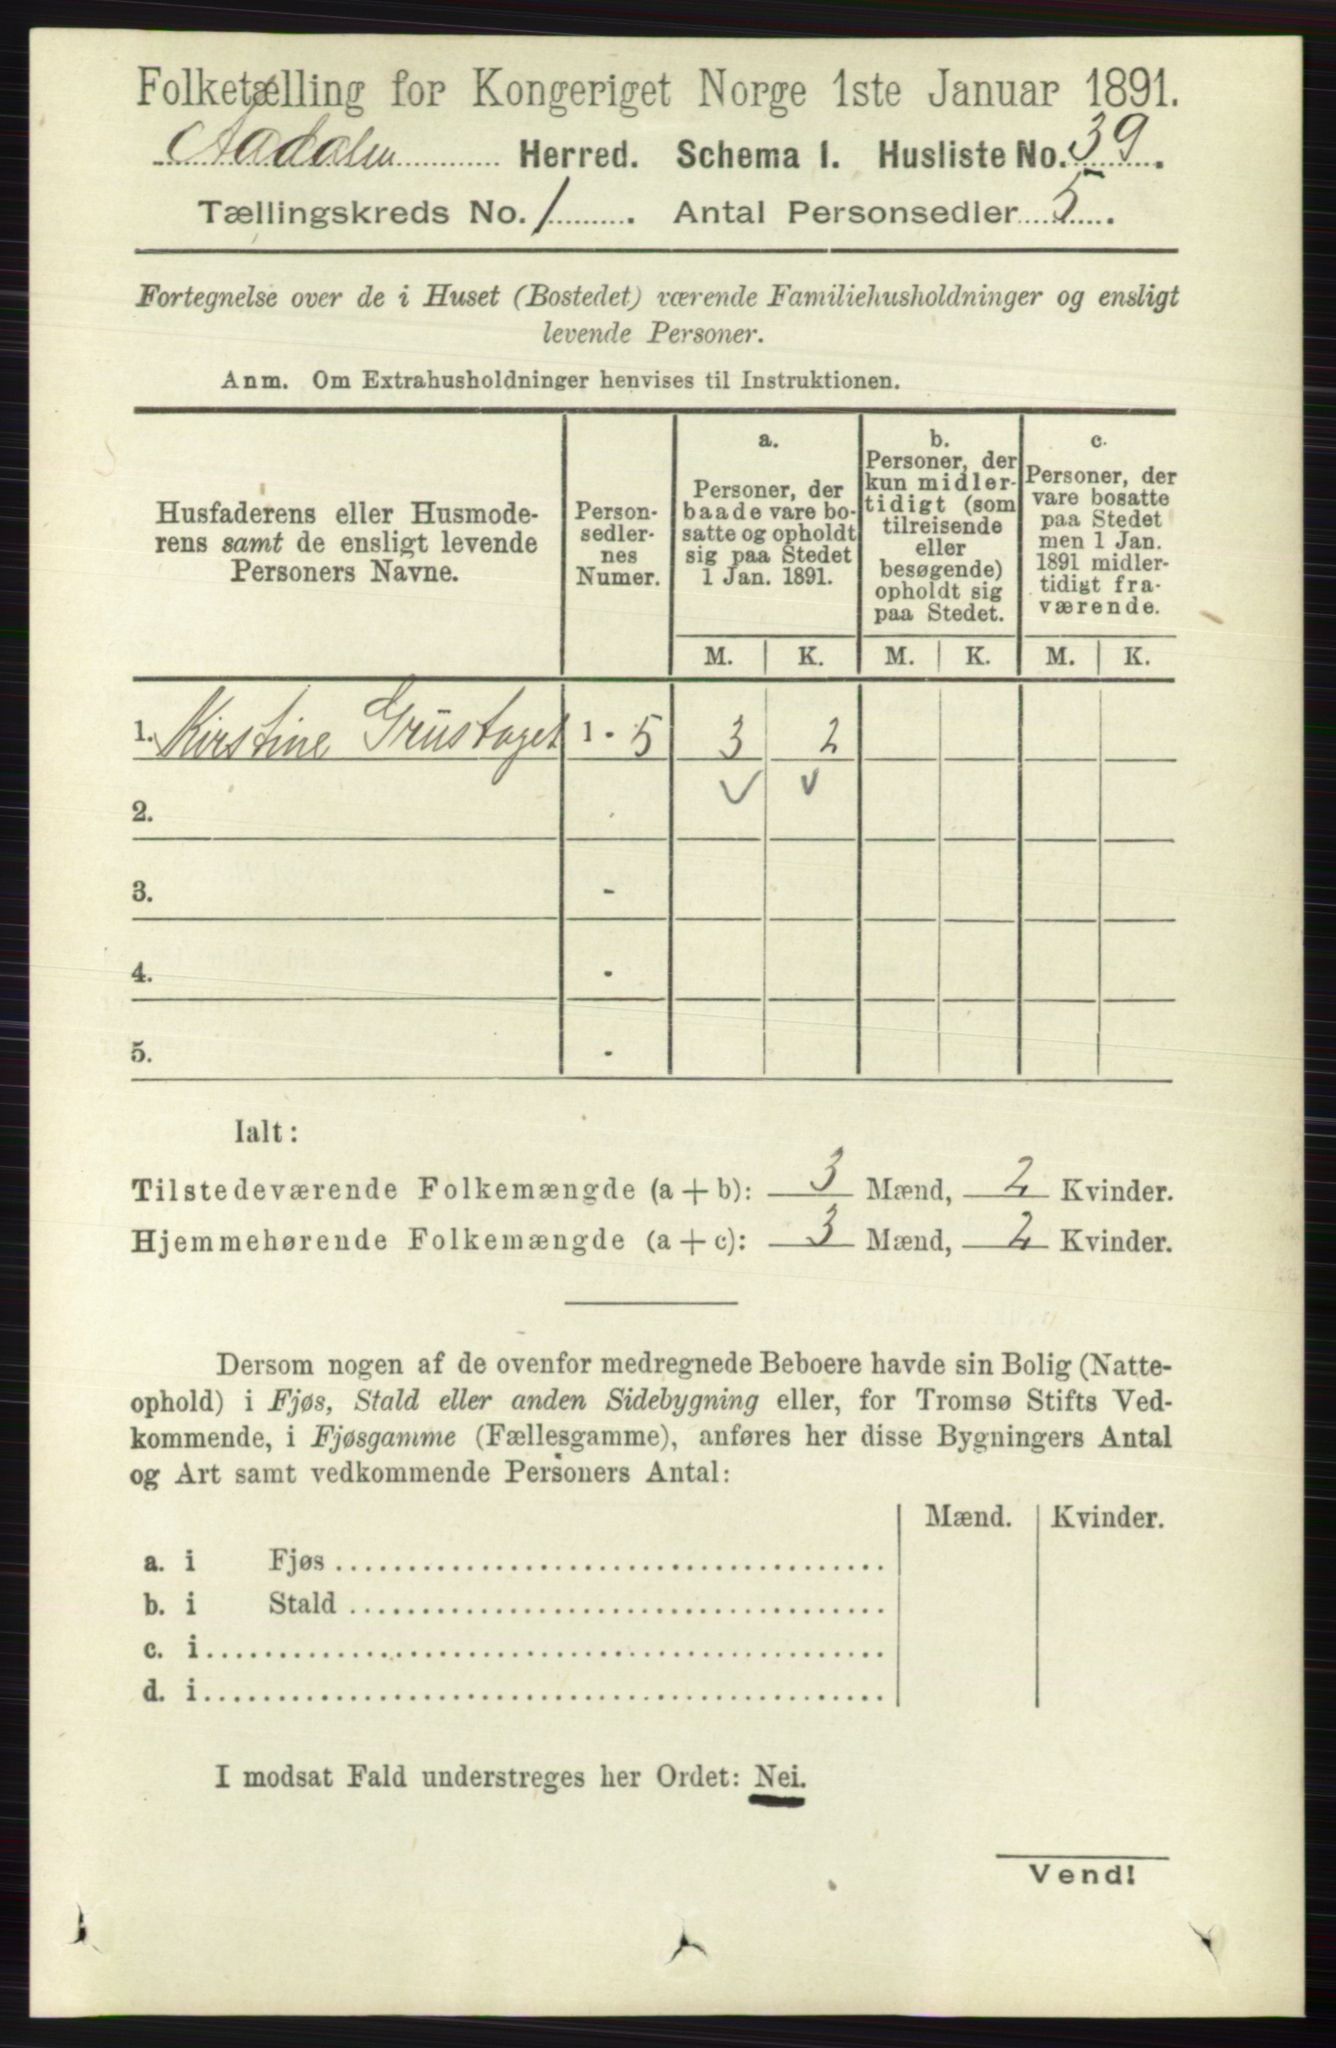 Folketælling for Kongeriget Norge 1ste Januar 1891.
Aadalen Herred. Schema 1. Husliste No. 39.
Tællingskreds No. 1. Antal Personsedler 5.
Fortegnelse over de i Huset (Bostedet) værende Familiehusholdninger og ensligt
levende Personer.
Anm. Om Extrahusholdninger henvises til Instruktionen.
Husfaderens eller Husmode-
rens samt de ensligt levende
Personers Navne.
Person-
sedler-
nes
Numer.
a.
Personer, der
baade vare bo-
satte og opholdt
sig paa Stedet
1 Jan. 1891.
b.
Personer, der
kun midler-
tidigt (som
tilreisende
eller
besøgende)
opholdt sig
paa Stedet.
c.
Personer, der
vare bosatte
paa Stedet
men 1 Jan.
1891 midler-
tidigt fra-
værende.
M. K. M. K. M. K.
1. Kirstine Grüstaget 1 - 5 3 2
2.
3. -
4. -
5. -
Ialt:
Tilstedeværende Folkemængde (a + b): 3 Mænd, 2 Kvinder.
Hjemmehørende Folkemængde (a + c): 3 Mænd, 2 Kvinder.
Dersom nogen af de ovenfor medregnede Beboere havde sin Bolig (Natte-
ophold) i Fjøs, Stald eller anden Sidebygning eller, for Tromsø Stifts Ved-
kommende, i Fjøsgamme (Fællesgamme), anføres her disse Bygningers Antal
og Art samt vedkommende Personers Antal:
Mænd. Kvinder.
a. i Fjøs
b. i Stald
c. i
d. i
I modsat Fald understreges her Ordet: Nei.
Vend!